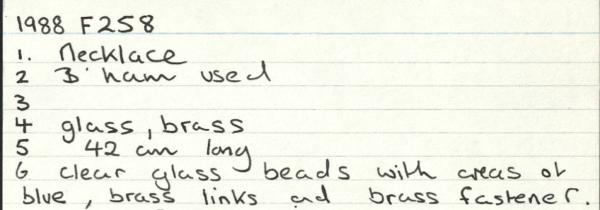 1988 F258
1. Necklace
2 B'ham used
3
4 glass, brass
5 42 cm long
6 clear glass beads with areas of
blue, brass links and brass fastener.